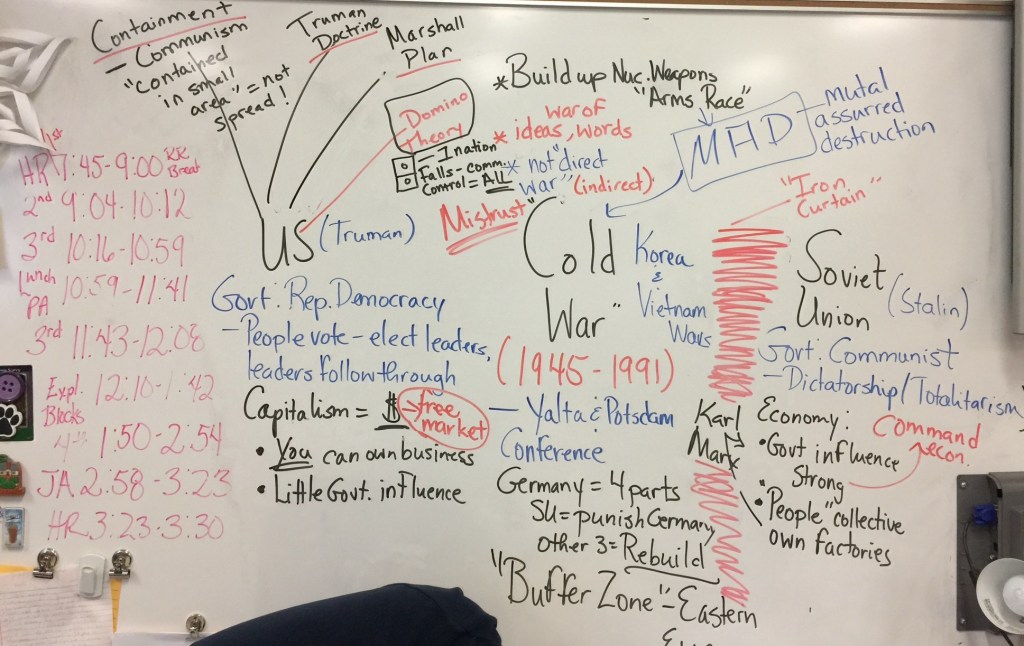 Containment
- Communism
"contained
in small
area" = not
spread!
Truman
Doctrine
Marshall
Plan
Domino
Theory
- 1 nation
Falls - comm.
Control = ALL
* Build up Nuc. Weapons
"Arms Race"
war of
* ideas, words
* not "direct
war" (indirect)
Mistrust
MHD
- mutal
assurred
destruction
"Iron
Curtain"
HR 7:45-9:00 RR
Break
2nd 9:04-10:12
3rd 10:16-10:59
Lunch 10:59-11:41
PA
3rd 11:43-12:08
Expl. 12:10-1:42
Blocks
4th 1:50-2:54
JA 2:58-3:23
HR 3:23-3:30
US (Truman)
Govt: Rep. Democracy
- People vote - elect leaders,
leaders follow through
Capitalism = $ → free
market
• You can own business
• Little Govt. influence
"Cold
War"
(1945-1991)
Korea
&
Vietnam
Wars
- Yalta & Potsdam
Conference
Germany = 4 parts
SU = punish Germany
other 3 = Rebuild
"Buffer Zone" - Eastern
Soviet
Union
(Stalin)
Govt: Communist
- Dictatorship/Totalitarism
Karl
Marx
Economy:
Command
econ.
• Govt influence
Strong
• "People" collective
own factories